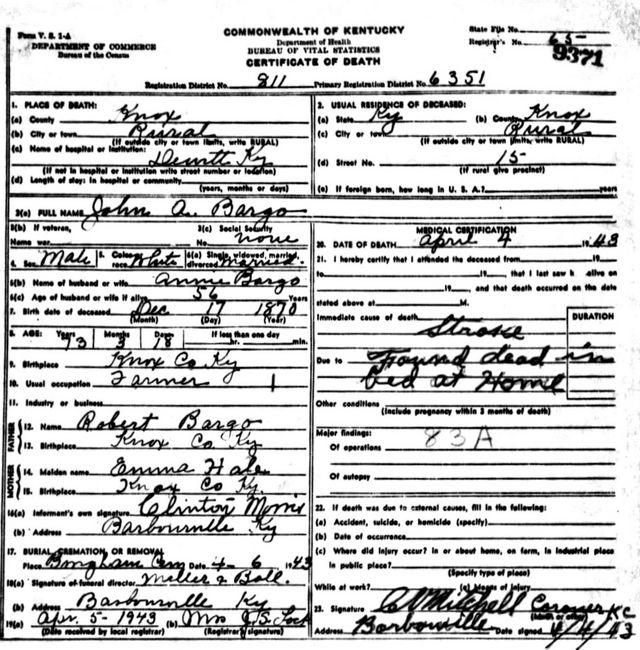 Form V. S. 1-A
DEPARTMENT OF COMMERCE
Bureau of the Census
COMMONWEALTH OF KENTUCKY
Department of Health
BUREAU OF VITAL STATISTICS
CERTIFICATE OF DEATH
State File No.
Registrar's No. 65-
9371
Registration District No. 811 Primary Registration District No. 6351
1. PLACE OF DEATH:
(a) County Knox
(b) City or town Rural
(If outside city or town limits, write RURAL)
(c) Name of hospital or institution:
Dewitt Ky
(If not in hospital or institution write street number or location)
(d) Length of stay: In hospital or community
(years, months or days)
2. USUAL RESIDENCE OF DECEASED:
(a) State Ky (b) County Knox
(c) City or town Rural
(If outside city or town limits, write RURAL)
(d) Street No. 15-
(If rural give precinct)
(e) If foreign born, how long in U. S. A.? years
3(a) FULL NAME John A. Bargo
3(b) If veteran, Name war
3(c) Social Security No. none
4. Sex Male 5. Color or race White 6(a) Single, widowed, married, divorced Married.
6(b) Name of husband or wife Annie Bargo
6(c) Age of husband or wife if alive 56 Years
7. Birth date of deceased Dec 17 1870
(Month) (Day) (Year)
8. AGE: Years Months Days If less than one day
73 3 18 hr. min.
9. Birthplace Knox Co Ky
10. Usual occupation Farmer
11. Industry or business
FATHER
12. Name Robert Bargo
13. Birthplace Knox Co Ky
MOTHER
14. Maiden name Emma Hale
15. Birthplace Knox Co Ky
16(a) Informant's own signature Clinton Morris
(b) Address Barbourville Ky
17. BURIAL, CREMATION, OR REMOVAL
Place Bingham Cem Date 4-6 1943
18(a) Signature of funeral director Miller & Ball.
(b) Address Barbourville Ky
19(a) Apr. 5-1943 (b) Mrs
(Date received by local registrar) (Registrar's signature)
MEDICAL CERTIFICATION
20. DATE OF DEATH April 4 1943
21. I hereby certify that I attended the deceased from , 19
to , 19 , that I last saw h alive on
, 19 , and that death occurred on the date
stated above at M.
Immediate cause of death DURATION
Stroke
Due to Found dead in
bed at Home
Other conditions
(Include pregnancy within 3 months of death)
Major findings:
Of operations 83A
Of autopsy
22. If death was due to external causes, fill in the following:
(a) Accident, suicide, or homicide (specify)
(b) Date of occurrence
(c) Where did injury occur? In or about home, on farm, in industrial place
in public place?
(Specify type of place)
While at work? (e) Means of Injury
23. Signature CV Mitchell Coroner KC
Address Barbourville Date signed 4/4/43